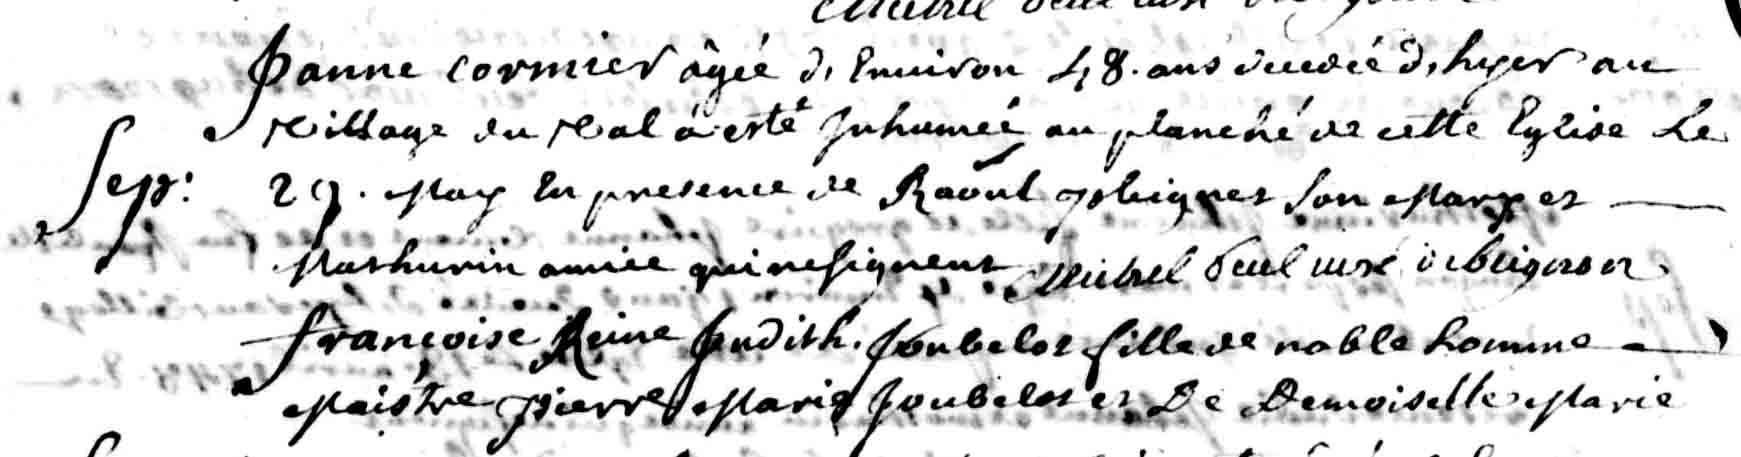 Janne cormier âgée d, Environ 48. ans decedée d, hyer au
village du val à esté Inhumée au planché de cette Eglise Le
Sep: 29. May En presence de Raoul son Mary et
Mathurin amice qui ne signent Michel curé
françoise Reine Judith. Joubelot fille de noble homme
Maistre pierre Marie Joubelot et De Demoiselle Marie